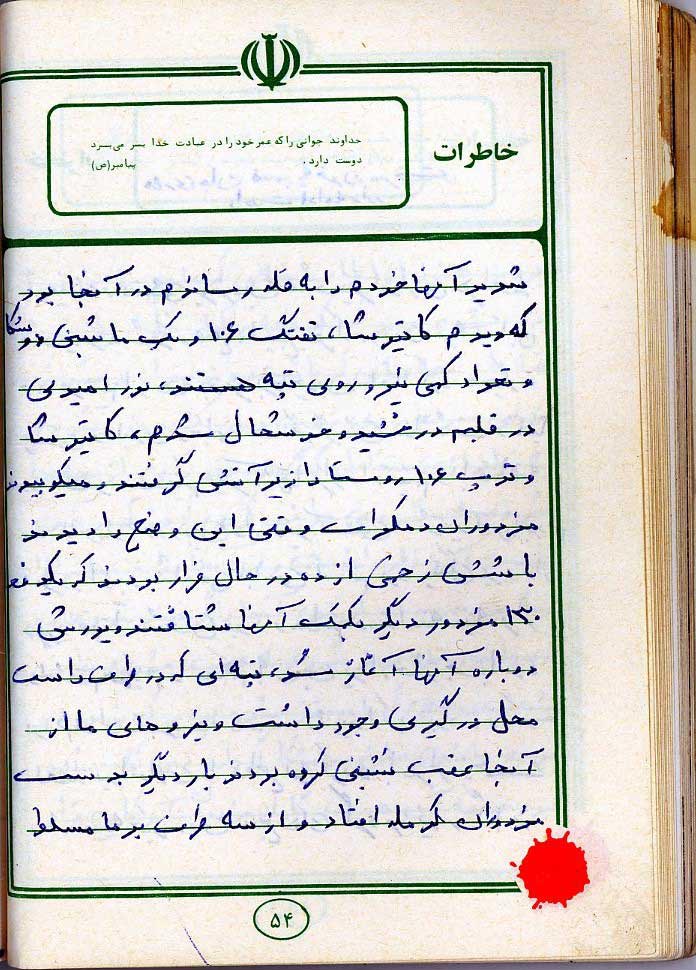 خاطرات
خداوند جوانی را که عمر خود را در عبادت خدا بسر می‌برد
دوست دارد. پیامبر(ص)
شدید آنها خودم را به قله رساندم در آنجا بود
که دیدم کاتیوشا، تفنگ ۱۰۶ و یک ماشین دوشکا
و تعداد کمی نیرو روی تپه هستند، نور امیدی
در قلبم درخشید و خوشحال شدم، کاتیوشا
و توپ ۱۰۶ روستا را زیر آتش گرفتند و میکوبیدند
مزدوران دمکرات وقتی این وضع را دیدند
با شش زخمی از ده در حال فرار بودند که یکدفعه
۱۳۰ مزدور دیگر بکمک آنها شتافتند و یورش
دوباره آنها آغاز شد، تپه‌ای که در طرف راست
محل درگیری وجود داشت و نیروهای ما از
آنجا عقب نشینی کرده بودند بار دیگر بدست
مزدوران کومله افتاد و از سه طرف بر ما مسلط
۵۴